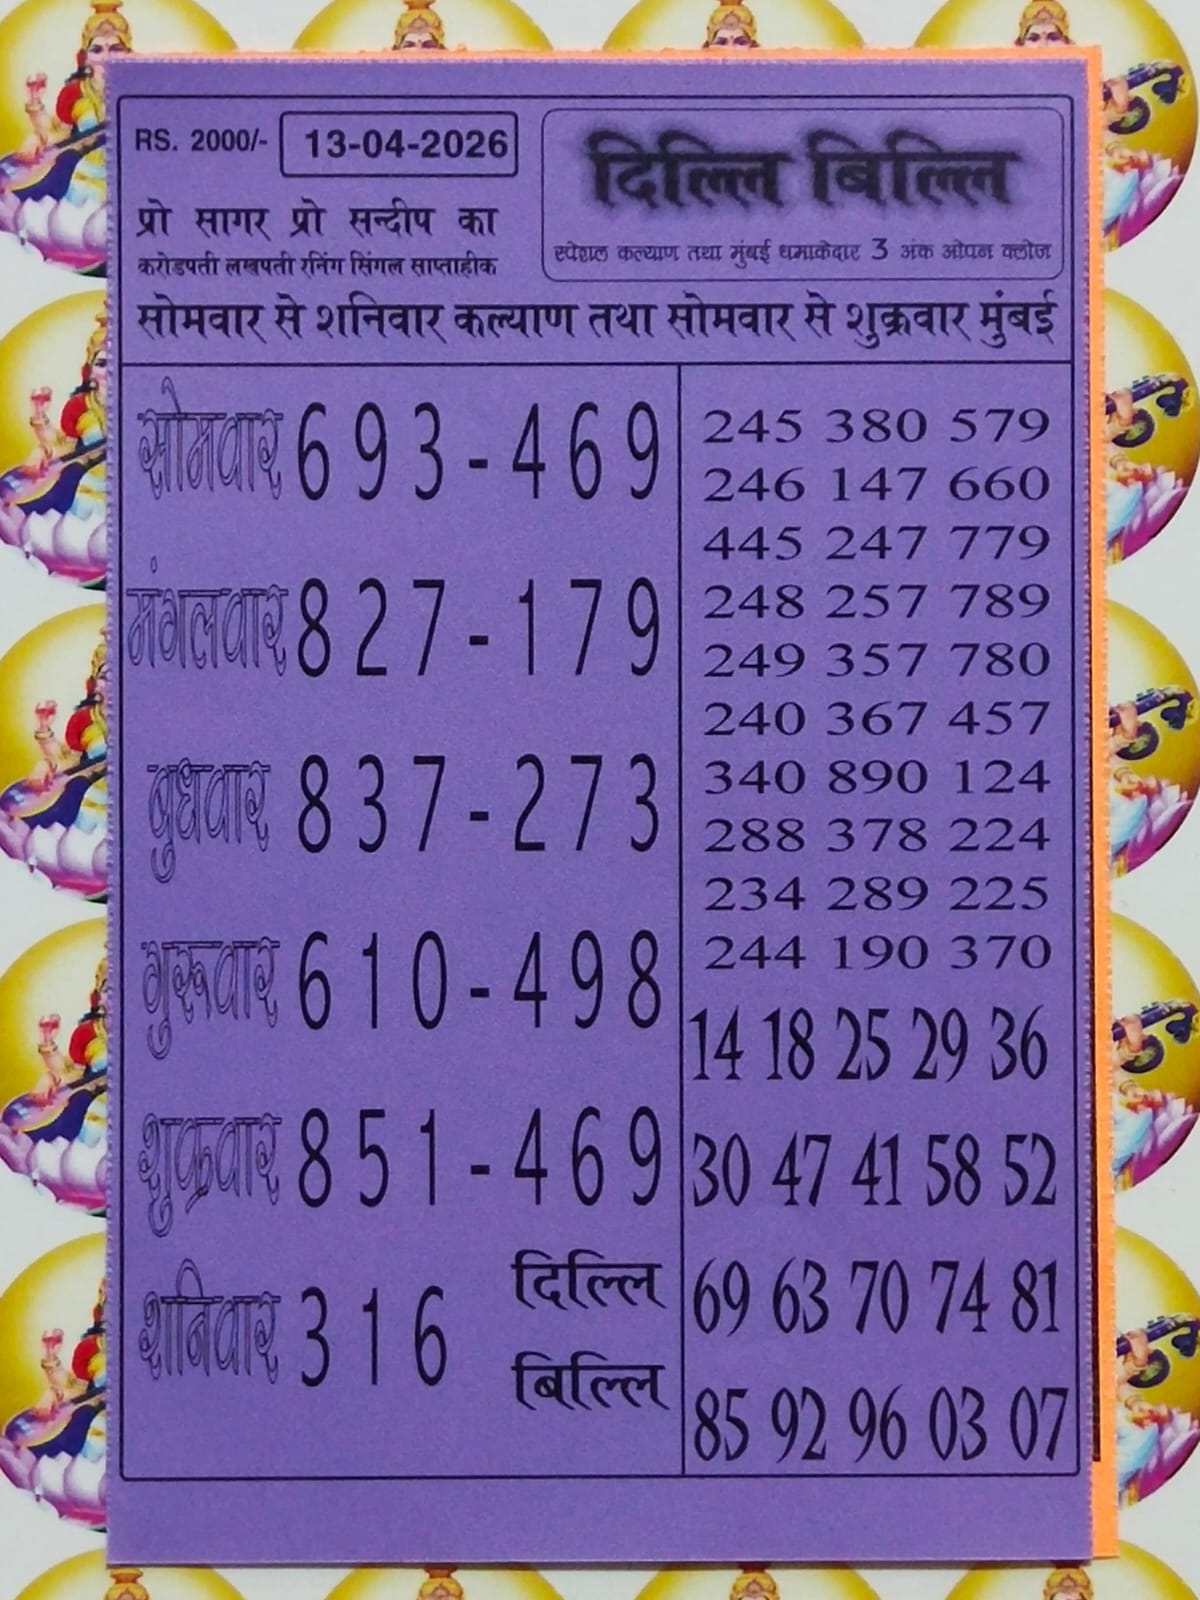 RS. 2000/- 13-04-2026
दिल्लि बिल्लि
प्रो सागर प्रो सन्दीप का
करोडपती लखपती रनिंग सिंगल साप्ताहीक
स्पेशल कल्याण तथा मुंबई धमाकेदार 3 अंक ओपन क्लोज
सोमवार से शनिवार कल्याण तथा सोमवार से शुक्रवार मुंबई
सोमवार 693-469
मंगलवार 827-179
बुधवार 837-273
गुरूवार 610-498
शुक्रवार 851-469
शनिवार 316
दिल्लि
बिल्लि
245 380 579
246 147 660
445 247 779
248 257 789
249 357 780
240 367 457
340 890 124
288 378 224
234 289 225
244 190 370
14 18 25 29 36
30 47 41 58 52
69 63 70 74 81
85 92 96 03 07